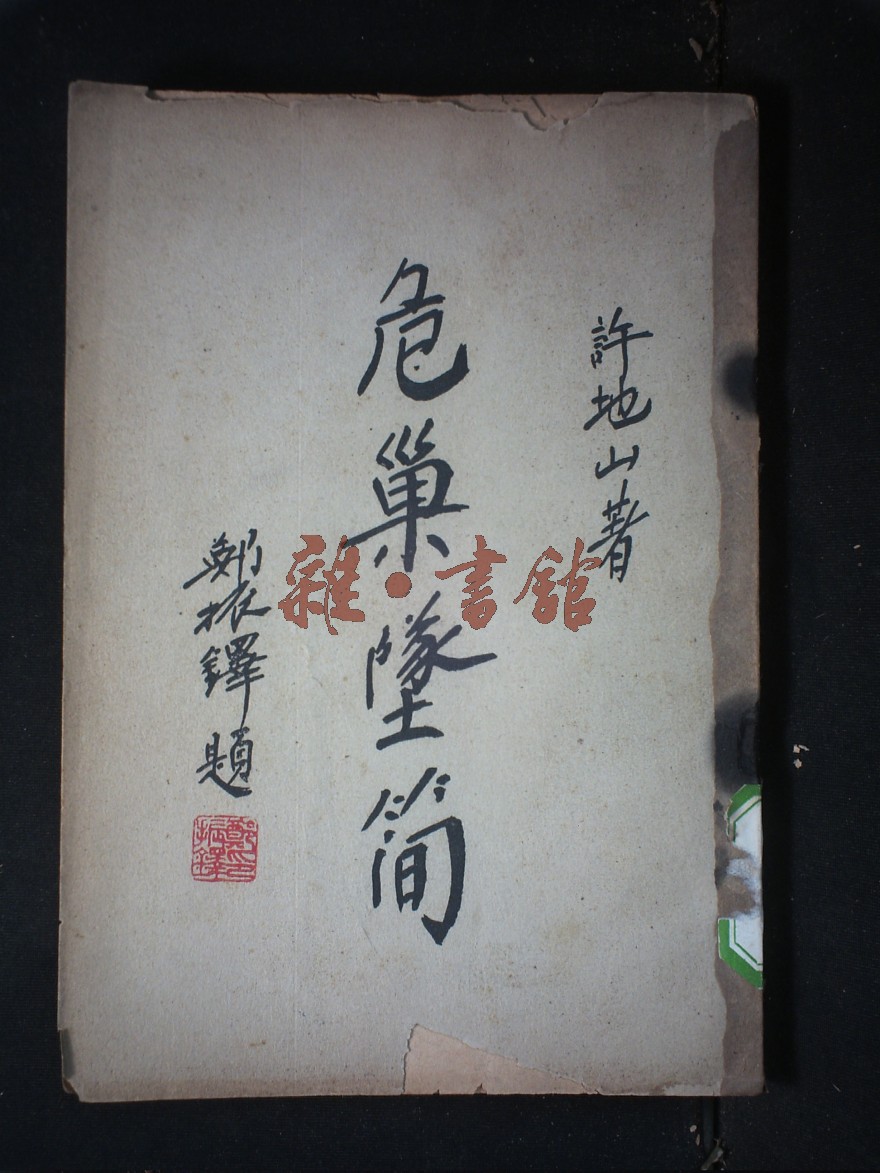 許地山著
危巢墜简
鄭振鐸題
鄭振鐸印
雜·書館